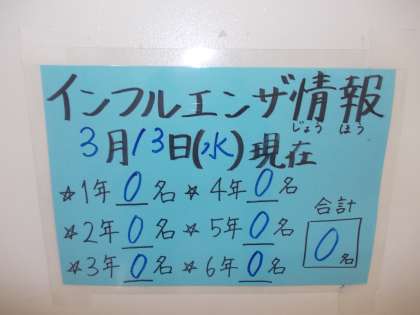 インフルエンザ情報
じょう ほう
3月13日(水)現在
☆1年 0名 ☆4年 0名
☆2年 0名 ☆5年 0名
☆3年 0名 ☆6年 0名
合計
0名